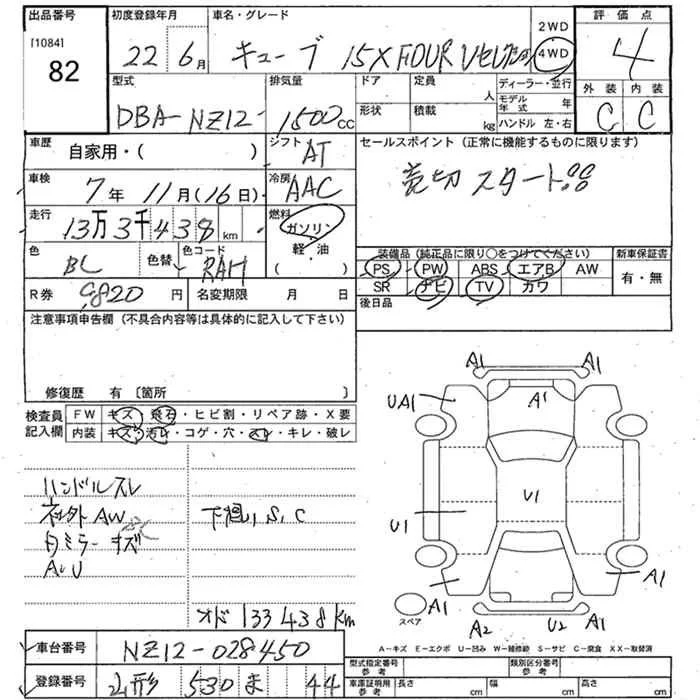 出品番号 初度登録年月 車名・グレード 2WD 評価点
[1084]
82 22年6月 キューブ 15X FOUR Vセレクション 4WD 4
型式 排気量 ドア 定員 人 ディーラー・並行 外装 内装
DBA-NZ12- 1500cc 形状 積載 kg モデル年式 年 C C
ハンドル 左・右
車歴 自家用・( ) シフト AT セールスポイント (正常に機能するものに限ります)
車検 7年 11月(16日) 冷房 AAC 売切 スタート!!
走行 13万3千438km 燃料 ガソリン・軽・油 ( )
色 BL 色替 色コード RAH 装備品 (純正品に限り○をつけてください) 新車保証書
PS PW ABS エアB AW 有・無
R券 9820円 名変期限 月 日 SR ナビ TV カワ
後日品
注意事項申告欄 (不具合内容等は具体的に記入して下さい)
修復歴 有 〔箇所 〕
検査員記入欄 FW キズ・飛石・ヒビ割・リペア跡・X要
内装 キズ・汚レ・コゲ・穴・スレ・キレ・破レ
ハンドルスレ
社外AW 下廻り S、C
ミラーキズ
A、U
オド 133438km
A1 A1
UA1 A1
U1
U1
A1 A1
スペア
A2 U2 A1
A-キズ E-エクボ U-凹み W-補修跡 S-サビ C-腐食 XX-取替済
車台番号 NZ12-028450 型式指定番号 参考 類別区分番号 参考
登録番号 山形 530 ま 44 車庫証明用参考 長さ cm 幅 cm 高さ cm